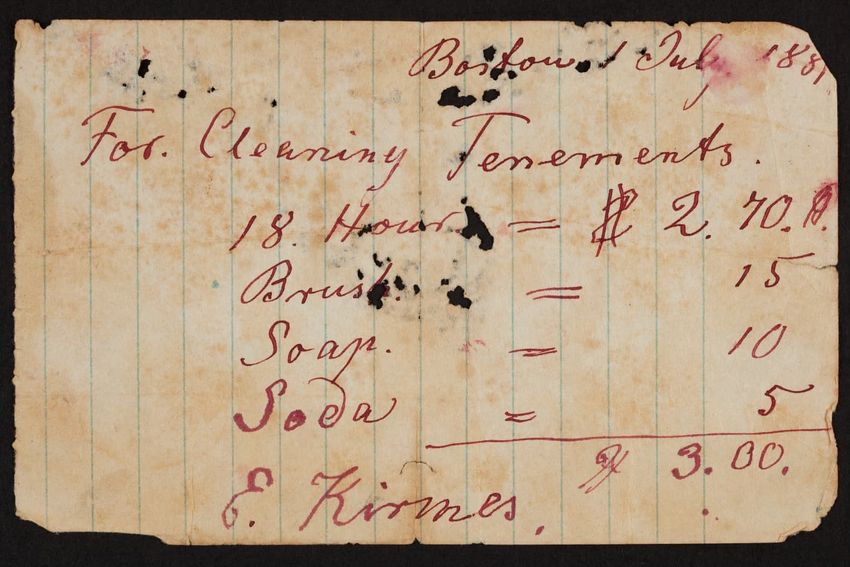 Boston 1 July 1881
For. Cleaning Tenements.
18. Hour = $ 2.70.
Brush. = 15
Soap. = 10
Soda = 5
$ 3.00.
E. Kirmes.